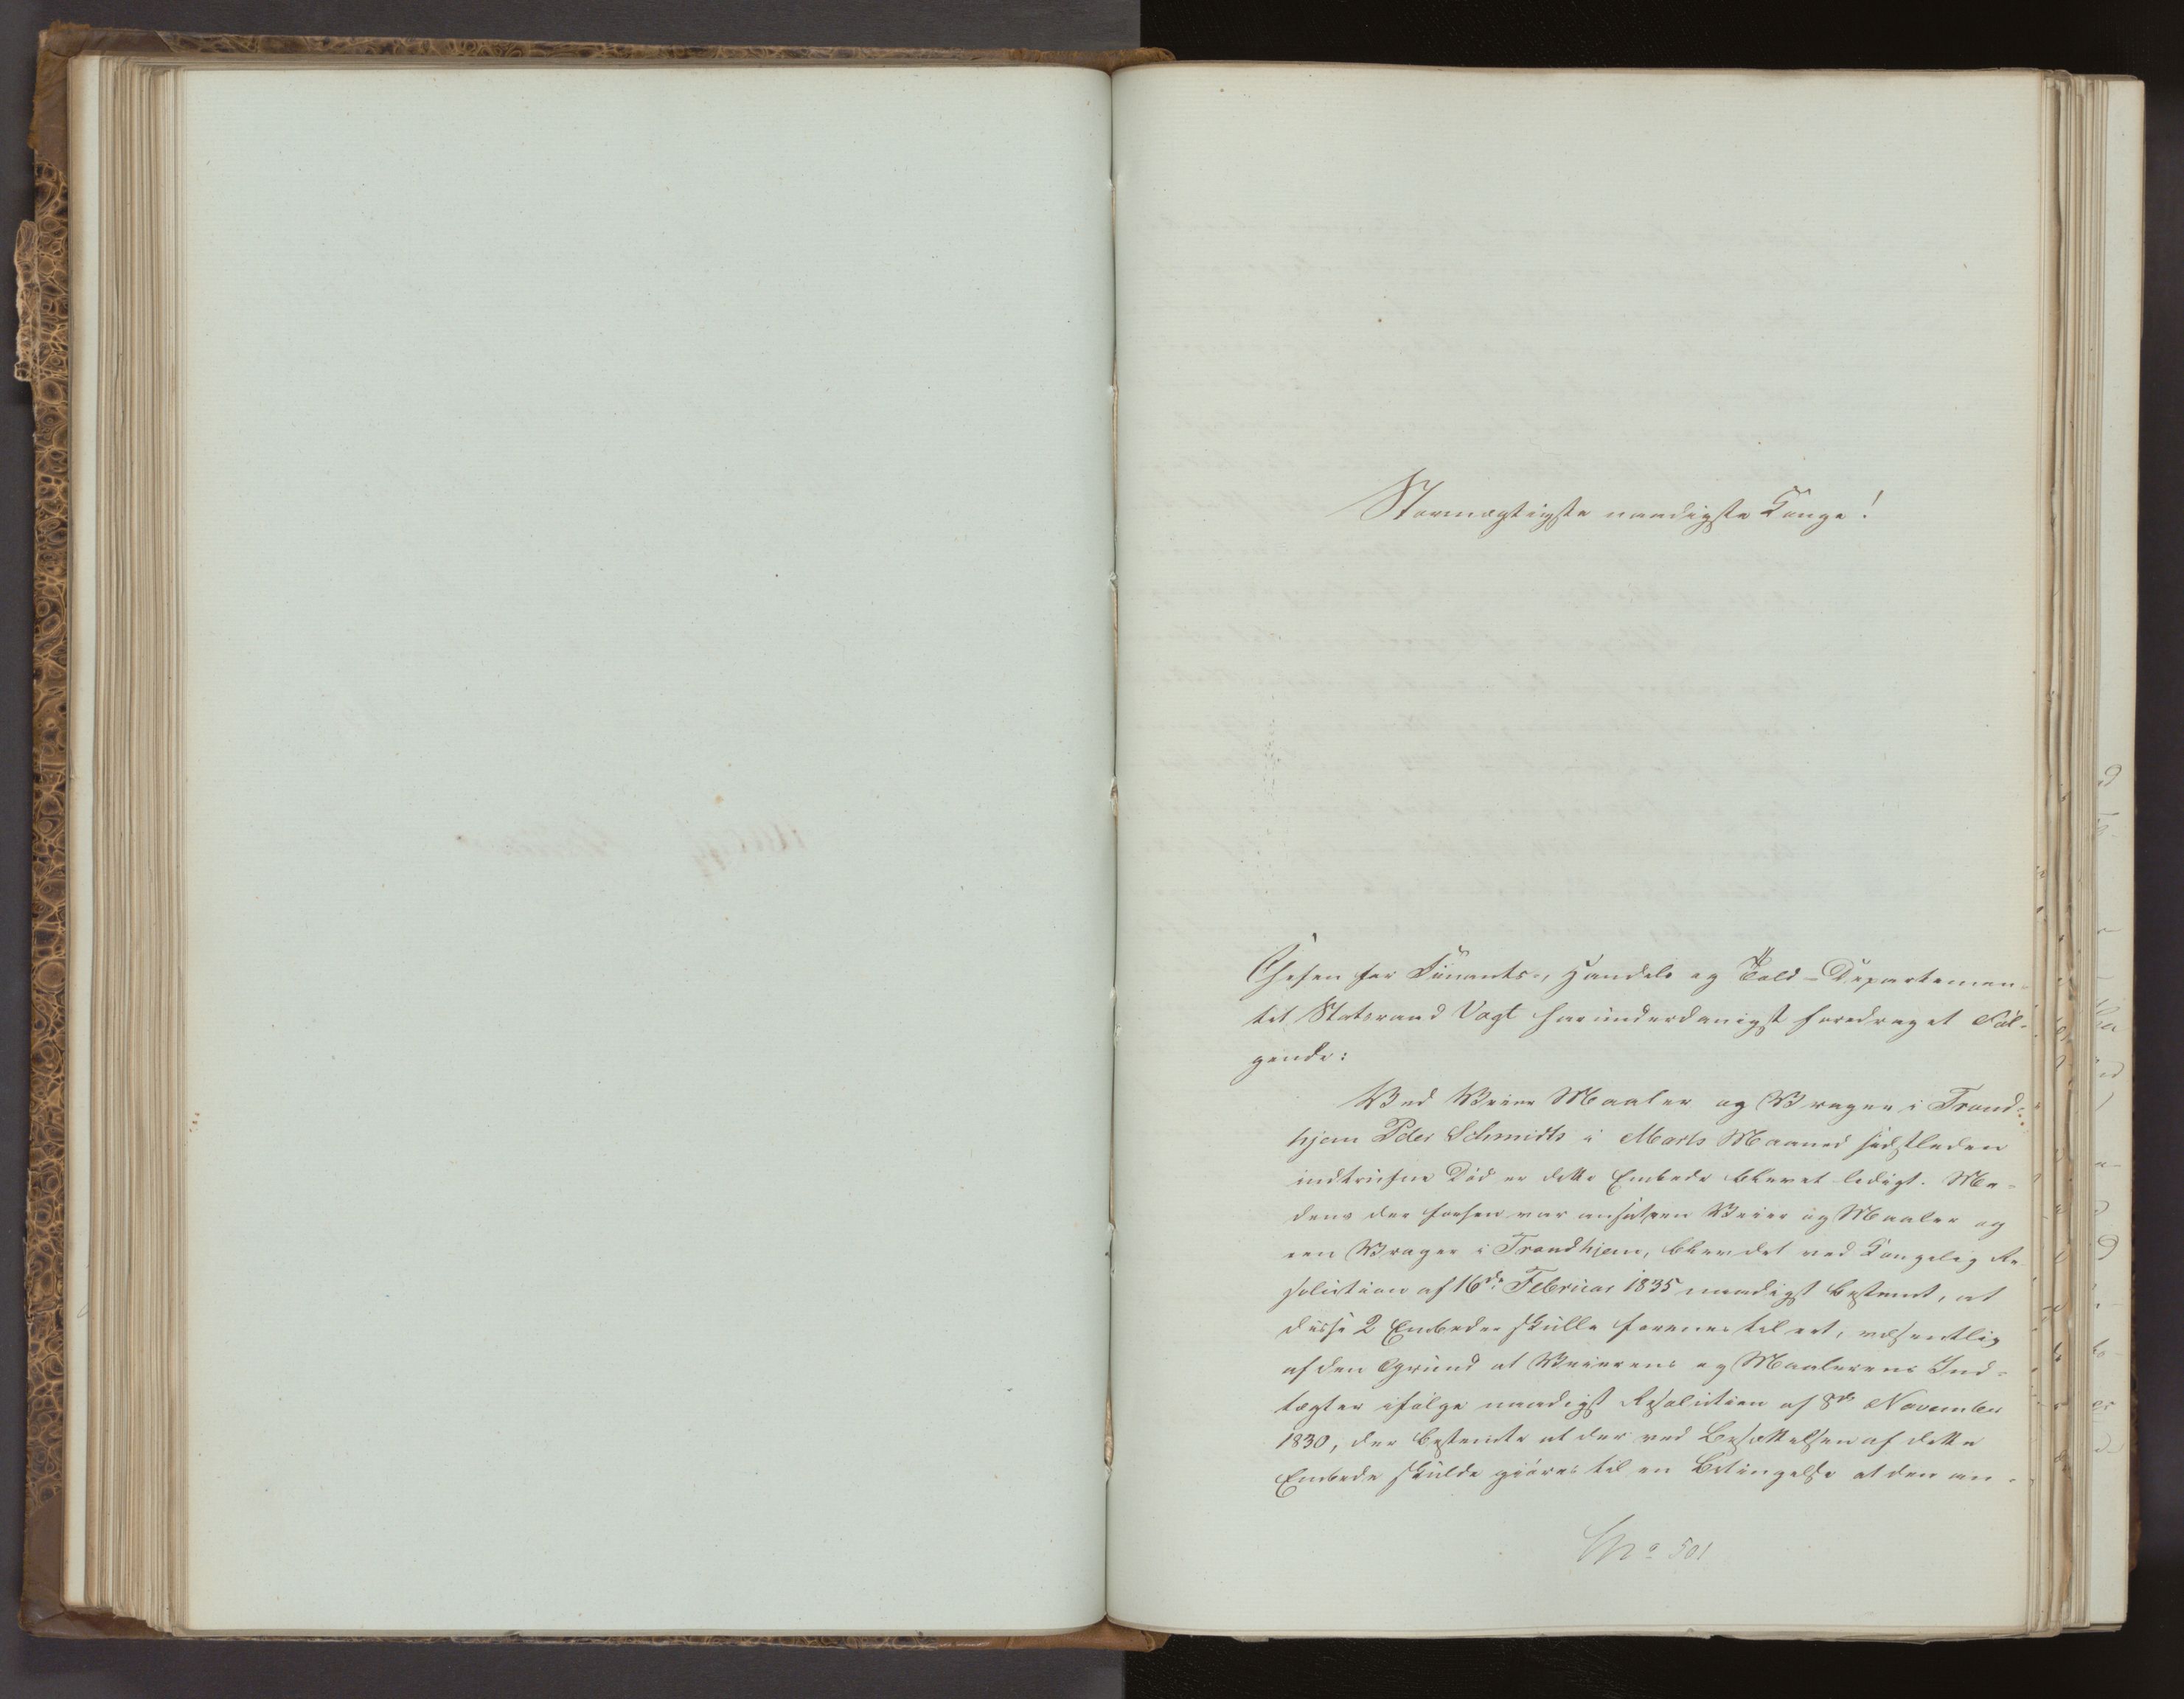 Stormægtigste naadigste Konge!
Chefen for Finants-, Handels og Told-Departemen-
tet Statsraad Vogt har underdanigst foredraget Føl-
gende:
Ved Veier Maaler og Vrager i Trond-
hjem Peter Schmidts i Marts Maaned sidstleden
indtrufne Død er dette Embede blevet ledigt. Me-
dens der forhen var ansat en Veier og Maaler og
een Vrager i Trondhjem, blev det ved Kongelig Re
solution af 16de Februar 1835 naadigst bestemt, at
disse 2 Embeder skulle forenes til eet, væsentlig
af den Grund at Veierens og Maalerens Ind-
tægter ifølge naadigst Resolution af 8de November
1830, der bestemte at der ved Besættelsen af dette
Embede skulde giøres til en Betingelse at den an-
No 501